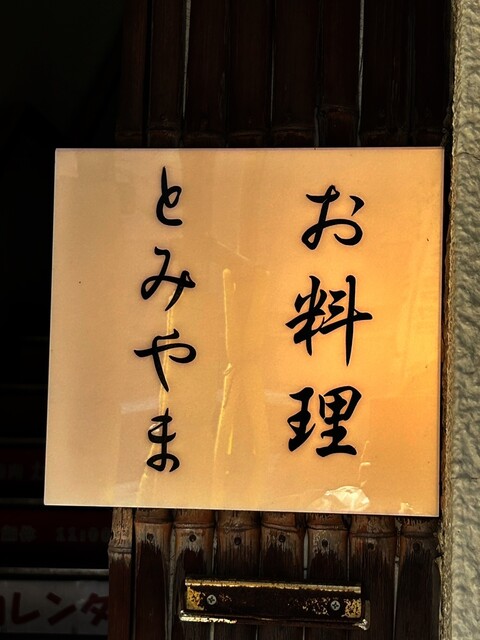 お料理
とみやま
レンタ